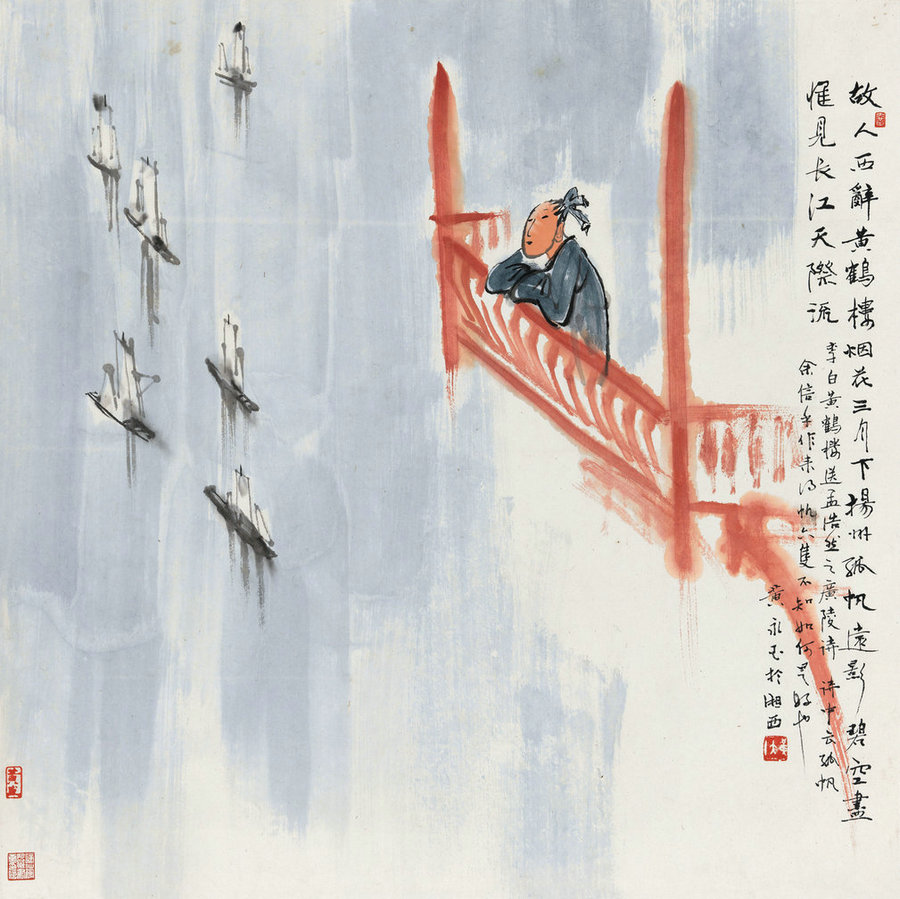 故人西辭黄鶴樓烟花三月下揚州孤帆遠影碧空盡
惟見长江天際流
李白黄鶴樓送孟浩然之廣陵诗 诗中云孤帆
余信手作来得帆六隻不知如何是好也
黄永玉於湘西